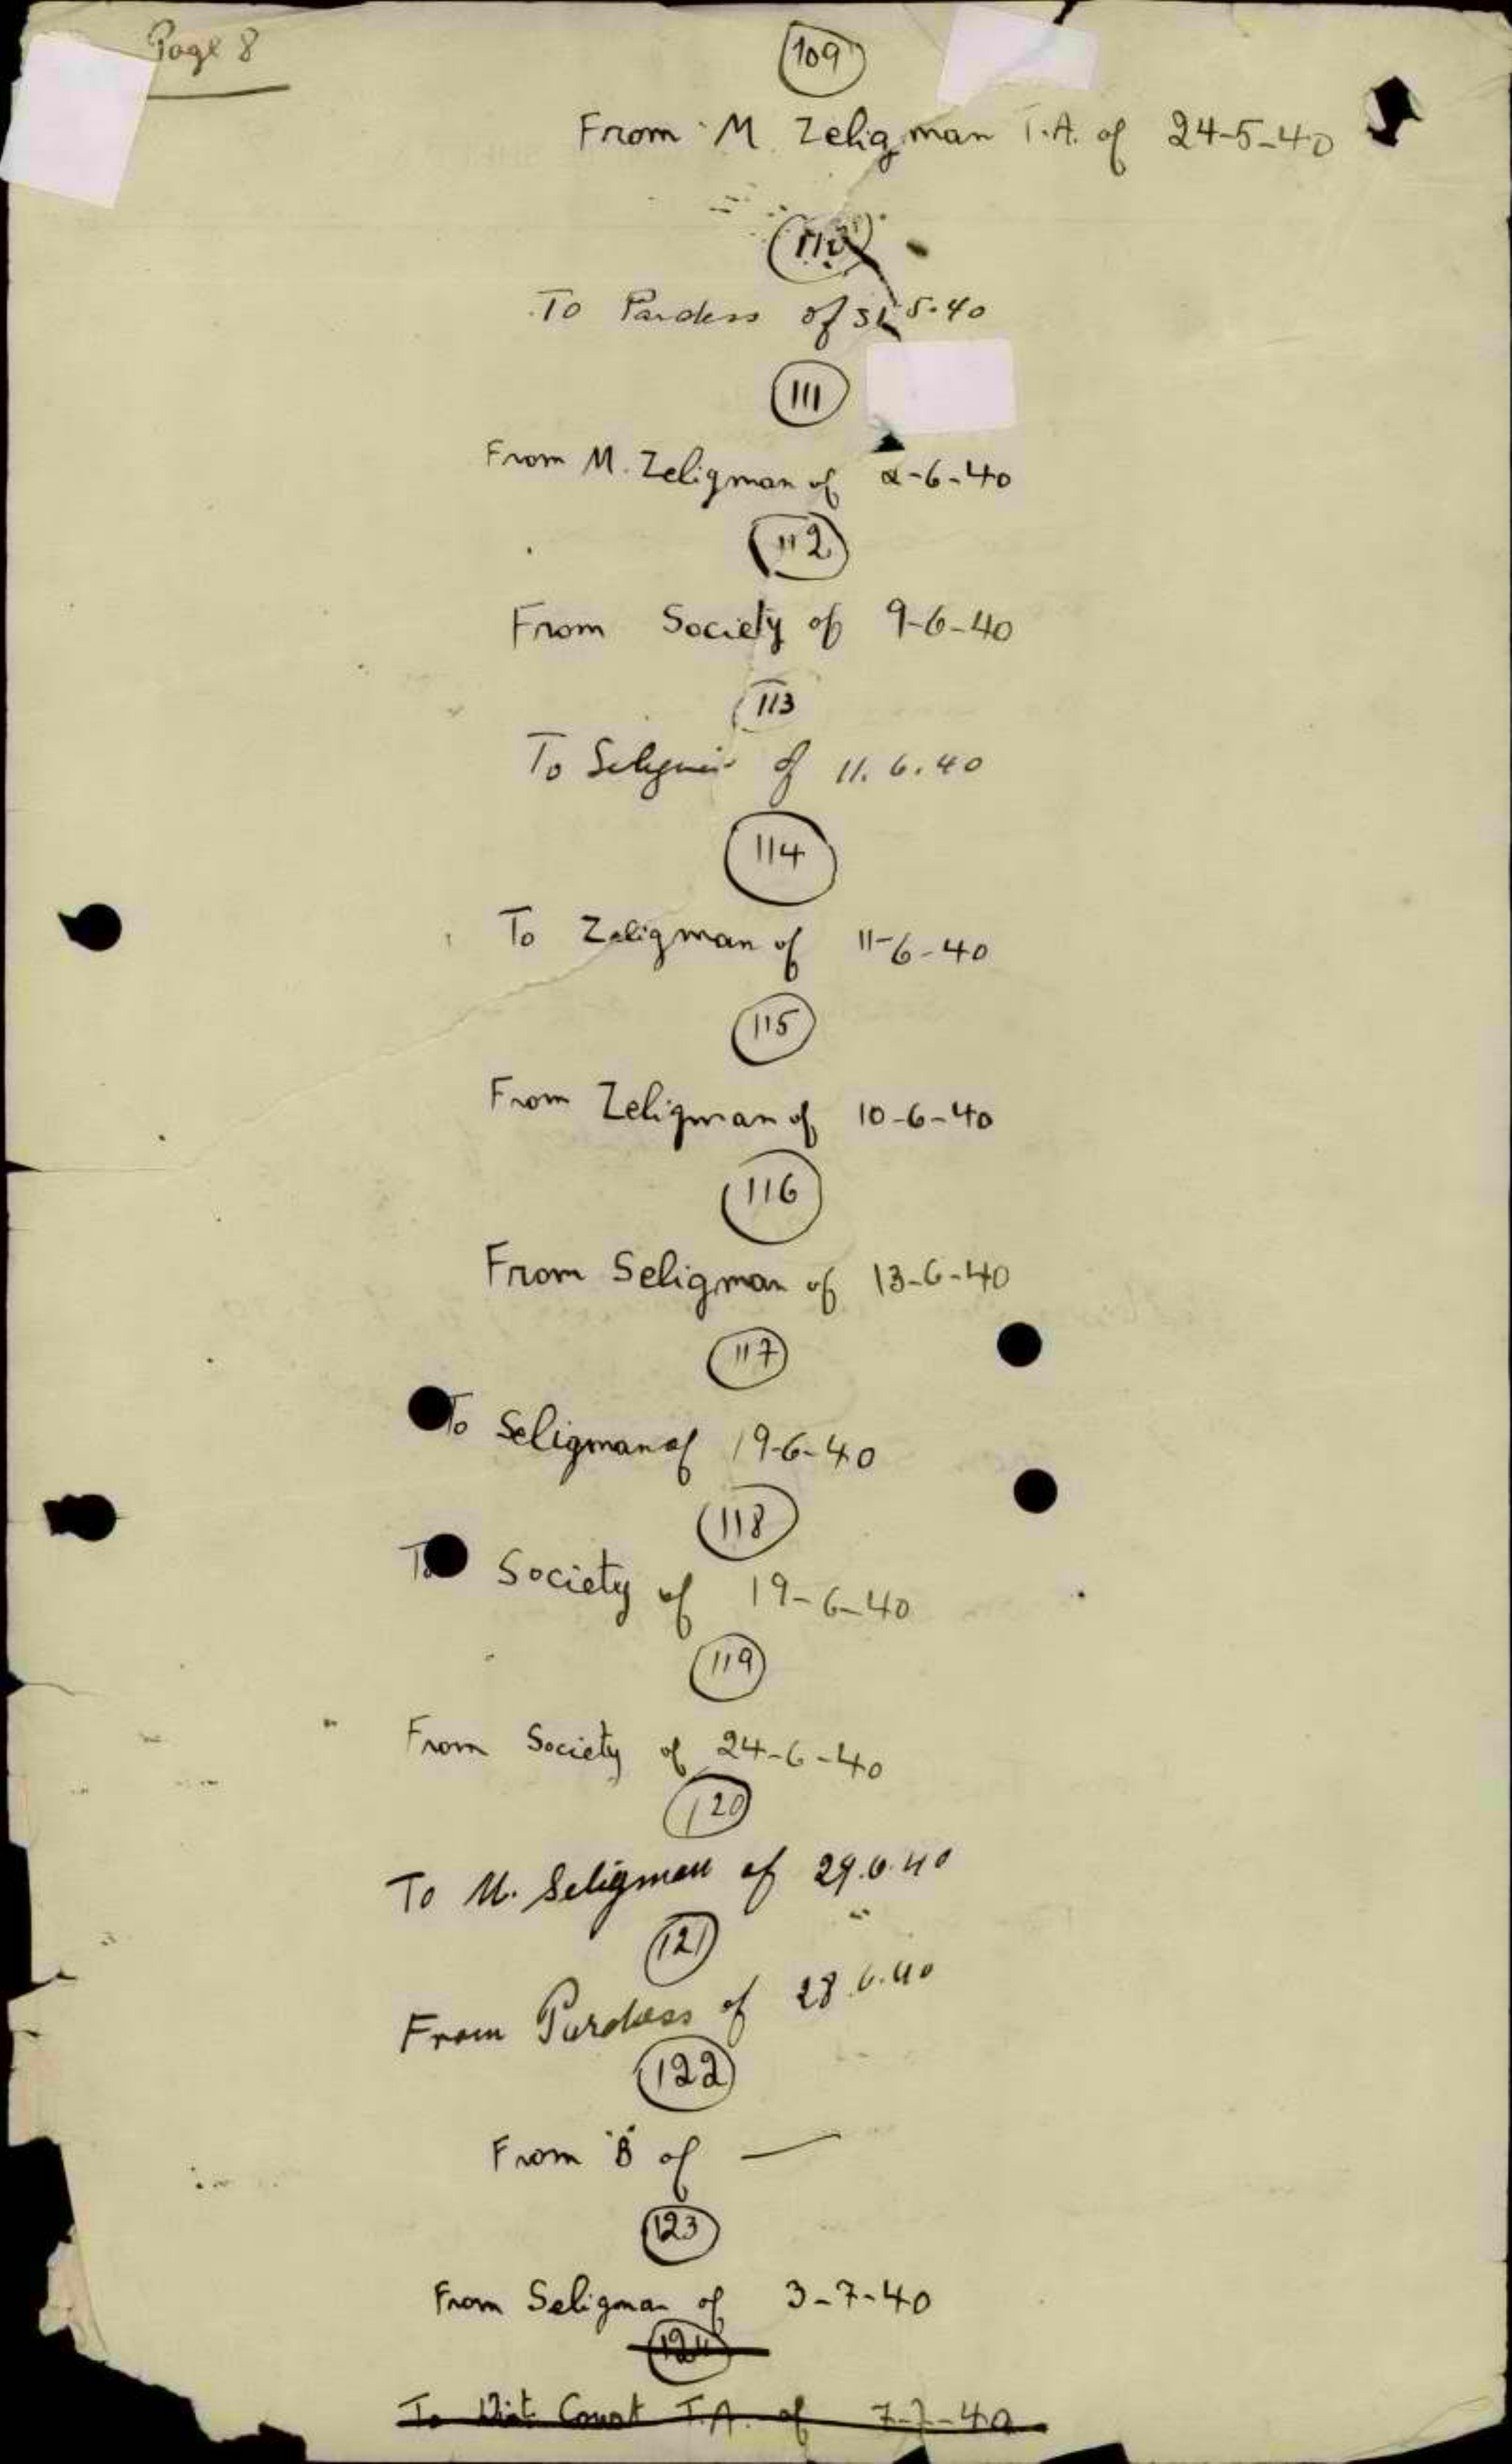 Page 8
109
From M. Zeligman T.A. of 24-5-40
110
To Pardess of 31.5.40
111
From M. Zeligman of 2-6-40
112
From Society of 9-6-40
113
To of 11.6.40
114
To Zeligman of 11-6-40
115
From Zeligman of 10-6-40
116
From Seligman of 13-6-40
117
To Seligman of 19-6-40
118
To Society of 19-6-40
119
From Society of 24-6-40
120
To M. Seligman of 29.6.40
121
From Pardess of 28.6.40
122
From "B" of —
123
From Seligman of 3-7-40
124
To Dist. Court T.A. of 7-7-40